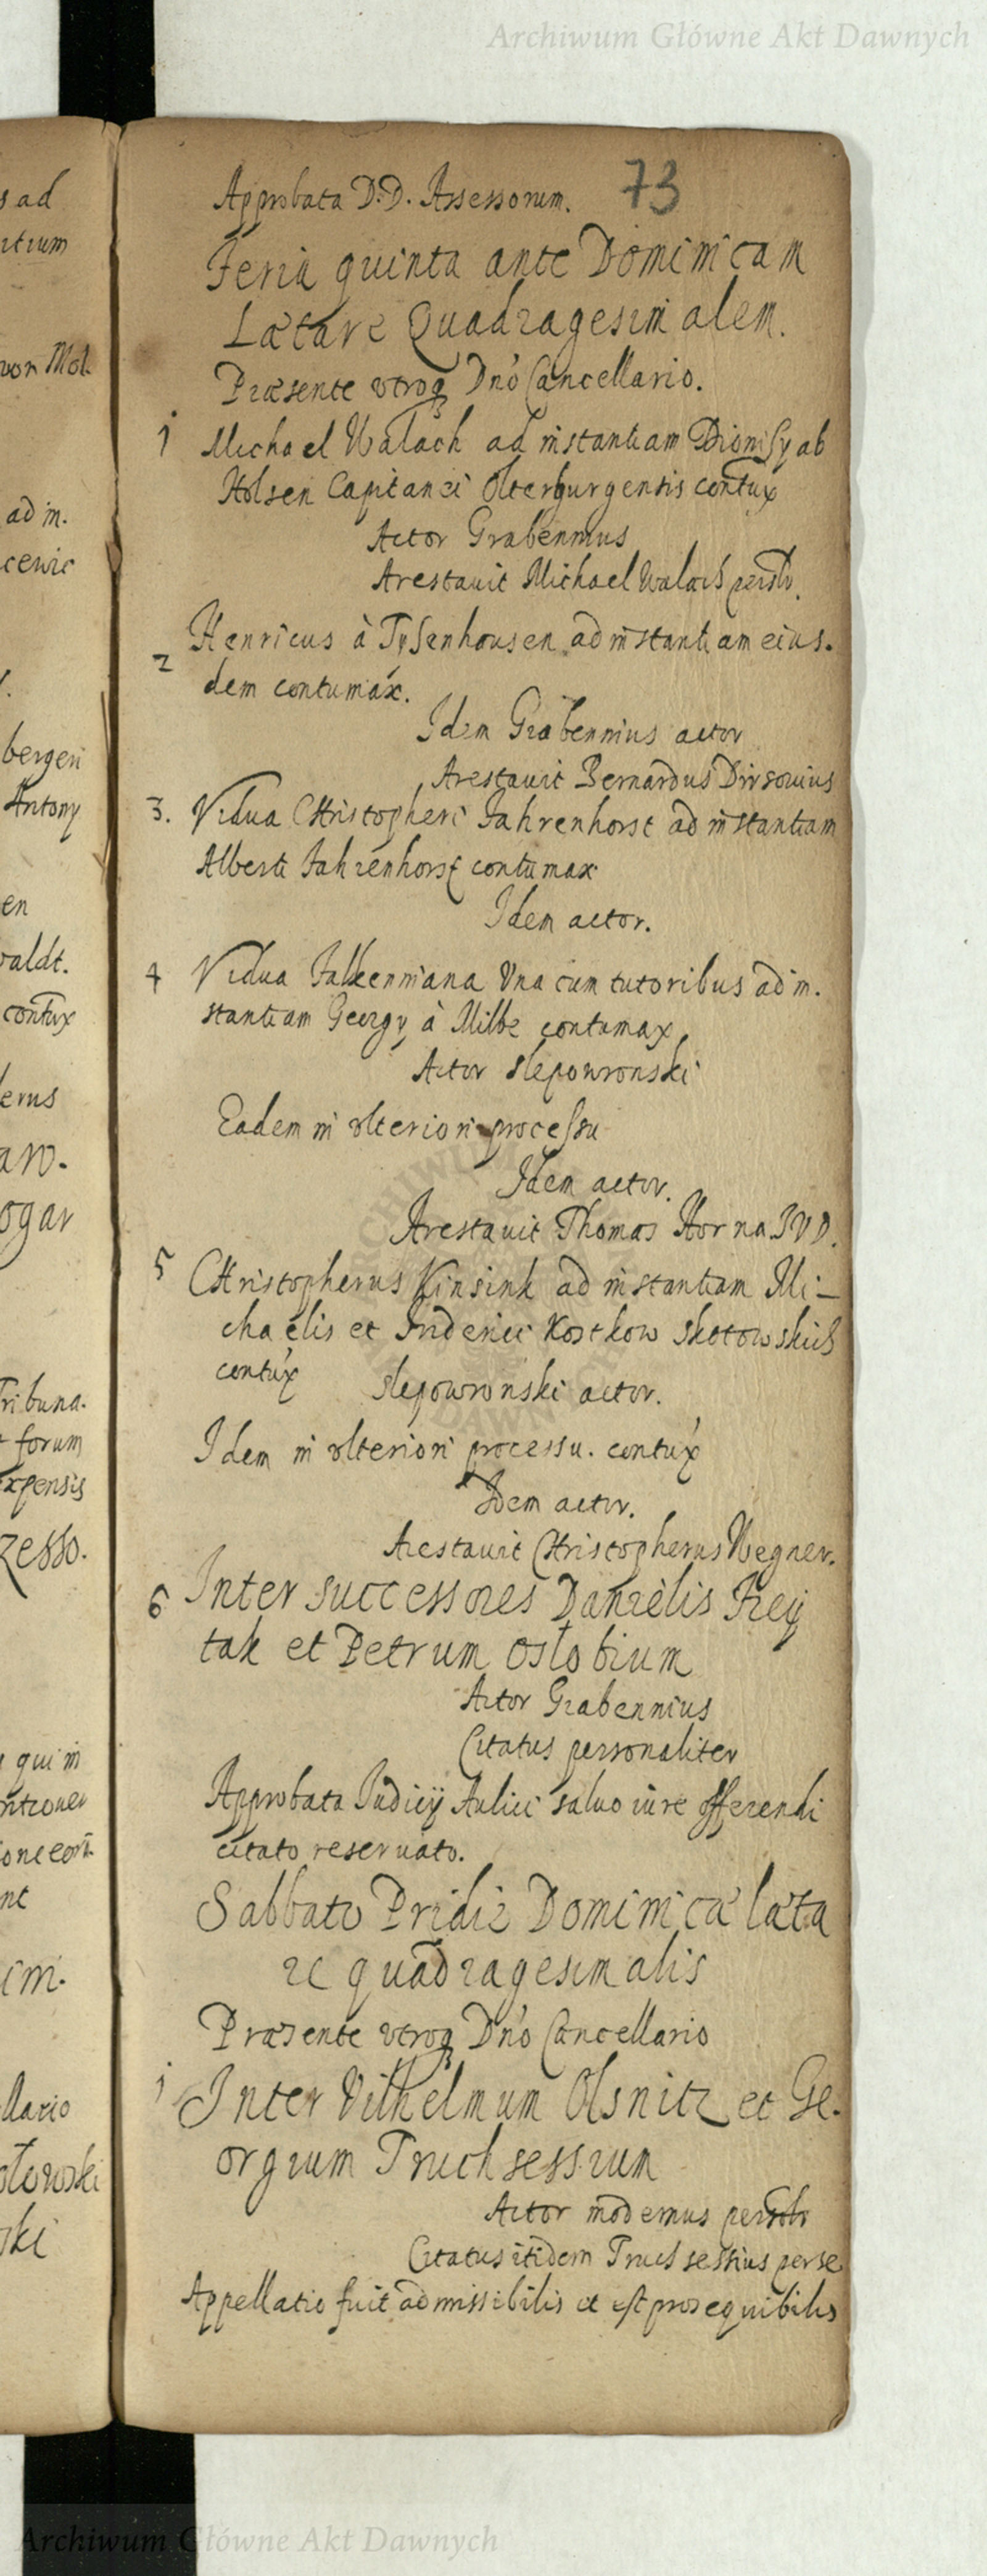 Archiwum Główne Akt Dawnych
s ad
ntium
von Mol.
ad in.
cewic
bergen
Antony
en
valdt.
contux
lerus
aw.
ogar
Tribuna.
forum
expensis
zesso.
qui in
nt
im.
llario
otowski
ski
73
Approbata D.D. Assessorum.
Feria quinta ante Dominicam
Lætare Quadragesimalem.
Præsente vtroq Dno Cancellario.
1 Michael Walach ad instantiam Dionisy ab
Holsen Capitanei Olterburgensis contux
Actor Grabennius
Arestauit Michael Walach persolr.
2 Henricus à Tysenhousen ad instantiam eius.
dem contumax.
Idem Grabennius actor
Arestauit Bernardus Dirsouius
3. Vidua Christopheri Fahrenhorst ad instantiam
Alberti Fahrenhorst contumax
Idem actor.
4 Vidua Falkenniana Vna cum tutoribus ad in.
stantiam Georgy à Milbe contumax
Actor Slepowronski
Eadem in vlteriori processu
Idem actor.
Arestauit Thomas Horna IVD.
5 Christopherus Kinsink ad instantiam Mi-
chaelis et Friderici Kostkow Skotowskich
contux Slepowronski actor.
Idem in vlteriori processu. contux
Idem actor.
Arestauit Christopherus Wegner.
6 Inter successores Danielis Frey
tak et Petrum Ostobium
Actor Grabennius
Citatus personaliter
Approbata Iudicij Aulici saluo iure offerendi
citato reseruato.
Sabbato Pridie Dominicæ læta
re quadragesimalis
Præsente vtroq Dno Cancellario
1 Inter Vilhelmum Olsnitz et Ge.
orgium Truchsessium
Actor modernus persolr
Citatus itidem Truchsessius per se
Appellatio fuit admissibilis et est prosequibilis
Archiwum Główne Akt Dawnych